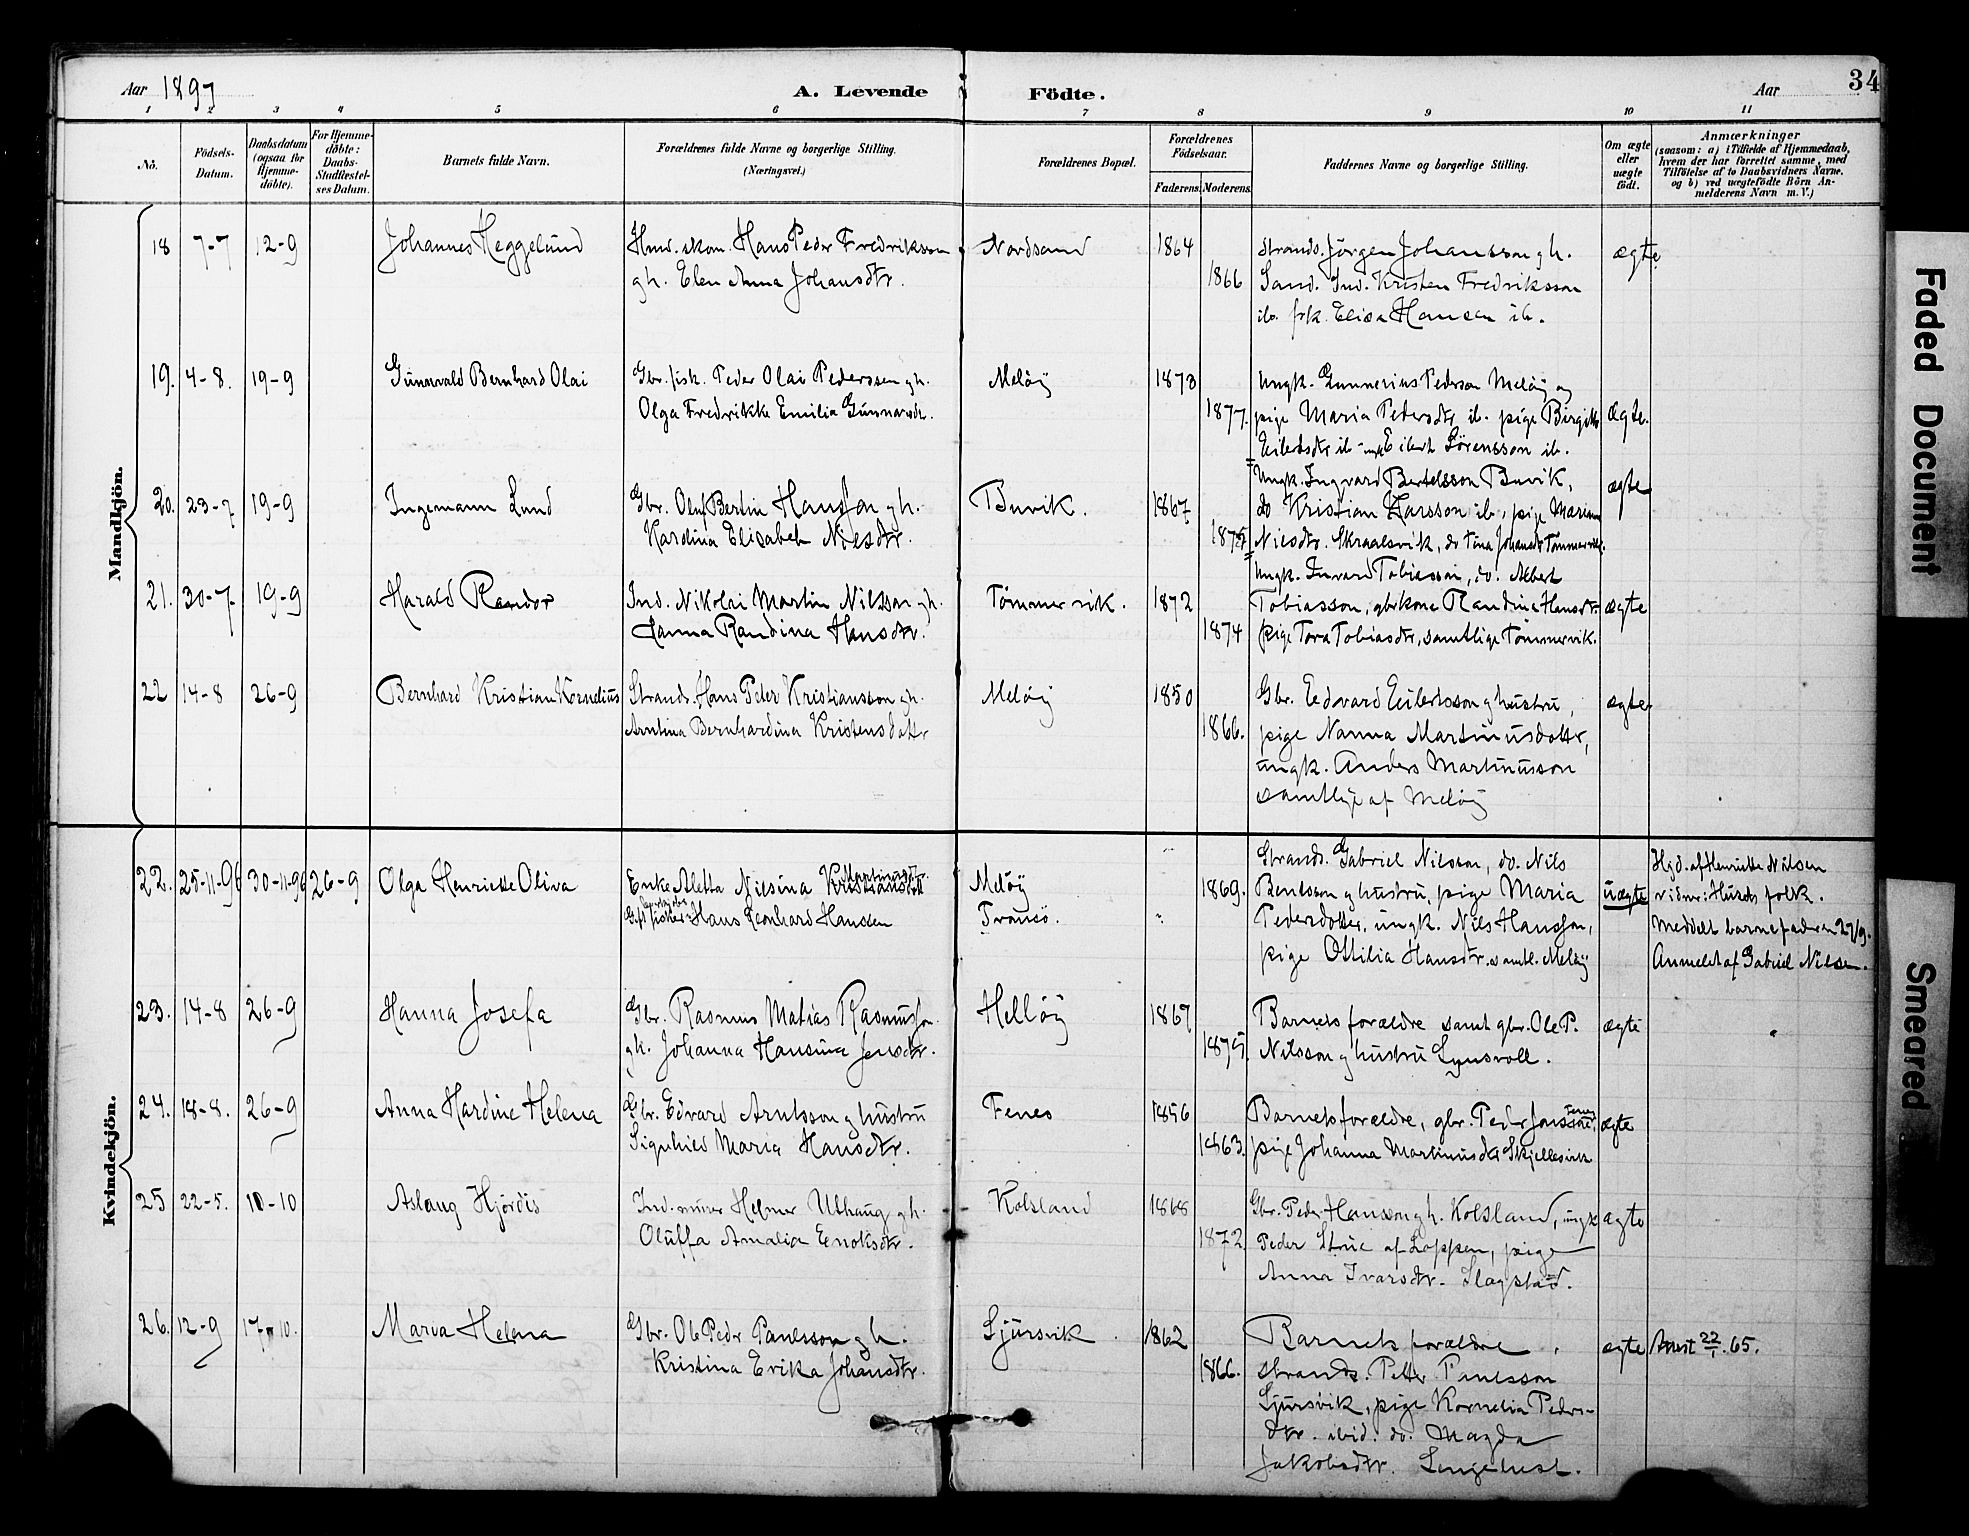 Aar 1897
A. Levende Födte.
Aar
34
1 2 3 4 5 6 7 8 9 10 11
No.
Födsels-Datum.
Daabsdatum (ogsaa for Hjemme-döbte).
For Hjemme-döbte: Daabs-Stadfæstel-ses Datum.
Barnets fulde Navn.
Forældrenes fulde Navne og borgerlige Stilling. (Næringsvei.)
Forældrenes Bopæl.
Forældrenes Födselsaar.
Faderens. Moderens.
Faddernes Navne og borgerlige Stilling.
Om ægte eller uægte födt.
Anmærkninger
(saasom: a) i Tilfælde af Hjemmedaab, hvem der har forrettet samme, med Tilföielse af to Daabsvidners Navne. og b) ved uægtefödte Börn An-melderens Navn m. V.)
Mandkjön.
18 7-7 12-9 Johannes Heggelund
Hmd. skom. Hans Peder Fredriksson
gh. Elen Anna Johansdtr.
Nordsand 1864 1866
Strands. Jørgen Johansson gh.
Sand. Ind. Kristen Fredriksson
ib. frk. Elisa Hansen ib.
ægte
19. 4-8. 19-9 Gunnvald Bernhard Olai
Gbr. fisk. Peder Olai Pederssen gh.
Olga Fredrikke Emilia Gunnarsdtr.
Meløy 1873 1877.
Ungk. Gunnerius Pederson Meløy og
pige Maria Pedersdtr ib. pige Birgitte
Eilertsdtr ib - ungk Eilert Sørensson ib.
ægte.
20. 23-7 19-9 Ingemann Lund
Gbr. Oluf Bertin Hansson gh.
Kardina Elisabeh Nilsdtr.
Buvik. 1867 1875
Ungk. Ingvard Bertelsson Buvik,
do Kristian Larsson ib., pige Marina
Nilsdtr. Skraalsvik, do Tina Johansdtr Tømmervik.
ægte
21. 30-7. 19-9 Harald Randor
Ind. Nikolai Martin Nilsson gh.
Hanna Randina Hansdtr.
Tømmervik. 1872 1874
Ungk. Invard Tobiasson, do. Albert
Tobiasson, gbrkone Randina Hansdtr
pige Tora Tobiasdtr, samtlige Tømmervik.
ægte
22 14-8 26-9 Bernhard Kristian Kornelius
Strands. Hans Peter Kristiansson gh.
Arntina Bernhardina Kristensdattr
Meløy 1850 1866.
Gbr. Eedvard Eilertsson g hustru,
pige Nanna Martinusdattr,
ungk. Anders Martinusson
samtlige af Meløy
ægte
Kvindekjön.
22. 25-11-96 30-11-96 26-9 Olga Henriette Oliva
Enke Aletta Nilsina
Gift fisker Hans Leonhard Hanssen
Meløy
Tromsø.
1869.
Strands. Gabriel Nilsson, do. Nils
Bentsson g hustru, pige Maria
Pedersdatter, ungk. Nils Hansson,
pige Ottilia Hansdtr. samtl. Meløy
uægte
Hjd. af Henriette Nilsen
vidner: Husets folk.
Meddelt barnefaderen 27/9.
Anmeldt af Gabriel Nilsen.
23. 14-8 26-9 Hanna Josefa
Gbr. Rasmus Matias Rasmusson
gh. Johanna Hansina Jensdtr.
Helløy 1867 1875.
Barnets forældre samt gbr. Ole P.
Nilsson g hustru Lynsvoll.
ægte
24. 18-8. 26-9 Anna Hardine Helena
Gbr. Edvard Arntsson g hustru
Signhild Maria Hansdtr.
Fenes 1856 1863.
Barnets forældre, gbr. Peder Jonsson Fenes,
pige Johanna Martinusdtr Skjellesvik
ægte
25 22-5. 10-10 Aslaug Hjørdis
Ind. miner Helmer Uthaug gh.
Oluffa Amalia Enoksdtr.
Kolsland 1868 1872
Gbr. Peder Hansson gh. Kolsland, ungk
Peder Strue af Loppen, pige
Anna Ivarsdtr. Slagstad.
ægte
26. 12-9 17-10. Marva Helena
Gbr. Ole Peder Paulsson gh.
Kristina Erika Johansdtr.
Sjursvik. 1862 1866.
Barnets forældre,
strands. Petter Paulsson
Sjursvik, pige Kornelia Peders-
dtr. ibid. do. Magda
Jakobsdtr.
ægte
22/1. 65.
Faded Document
Smeared